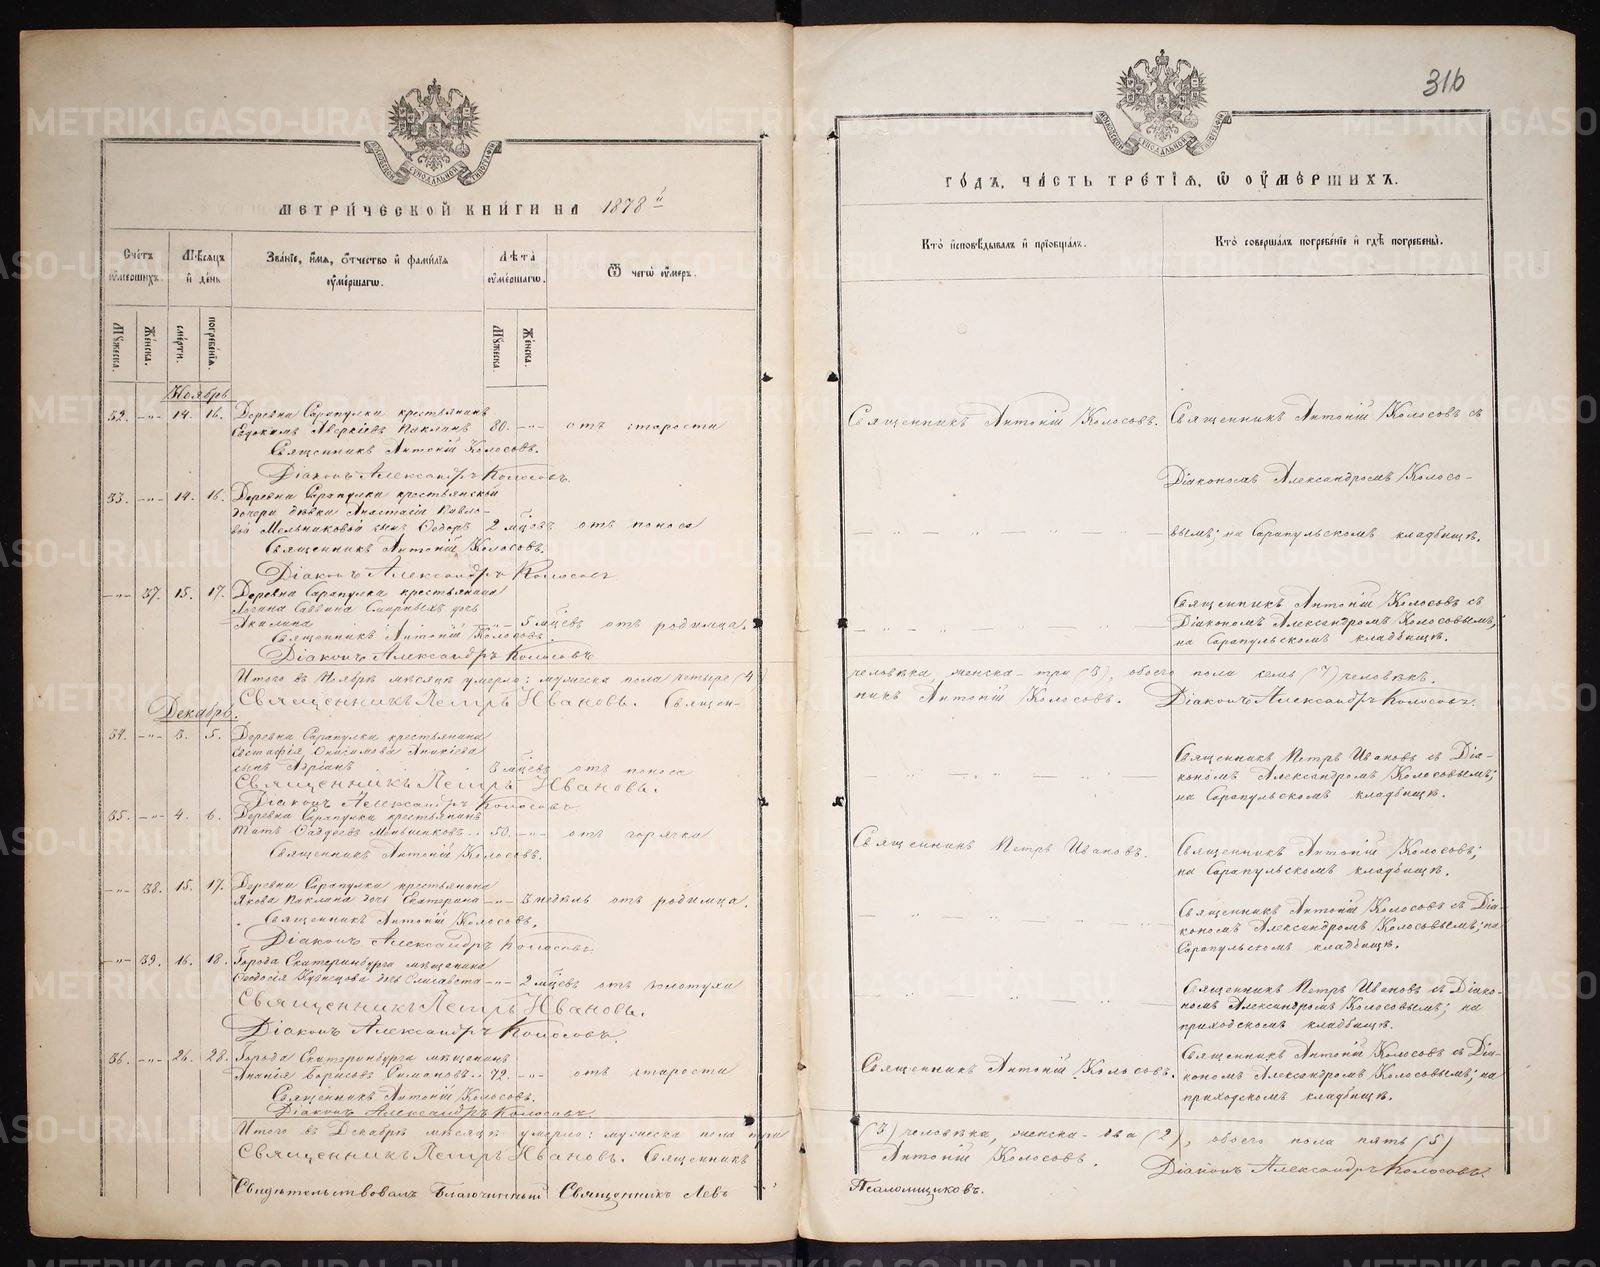 316
МЕТРИЧЕСКОЙ КНИГИ НА 1878й
ГОДЪ, ЧАСТЬ ТРЕТІЯ, Ѿ ОУМЕРШИХЪ.
Счетъ оумершихъ.
Мѣсяцъ и день
Званіе, имя, отчество и фамилія оумершагω.
Лѣта оумершагω.
Ѿ чегω оумеръ.
Кто исповѣдывалъ и пріобщалъ.
Кто совершалъ погребеніе и гдѣ погребены.
Мужеска.
Женска.
смерти.
погребенія.
Мужеска.
Женска.
Ноябрь
32. -"- 14. 16. Деревни Сарапулки крестьянинъ
Евдокимъ Аверкіевъ Паклинъ 80. -"- отъ старости
Священникъ Антоній Колосовъ.
Діаконъ Александръ Колосовъ.
Священникъ Антоній Колосовъ.
Священникъ Антоній Колосовъ съ
Діакономъ Александромъ Колосо-
33. -"- 14. 16. Деревни Сарапулки крестьянской
дочери дѣвки Анастасіи Павло-
вой Мельниковой сынъ Ѳедоръ 2 мѣсяцъ отъ поноса
Священникъ Антоній Колосовъ.
Діаконъ Александръ Колосовъ
вымъ; на Сарапульскомъ кладбищѣ.
-"- 37. 15. 17. Деревни Сарапулки крестьянина
Саввина Смирныхъ дочь
Акилина -"- 5 мцевъ отъ родимца.
Священникъ Антоній Колосовъ.
Діаконъ Александръ Колосовъ
Священникъ Антоній Колосовъ съ
Діакономъ Александромъ Колосовымъ;
на Сарапульскомъ кладбищѣ.
Итого въ Ноябрѣ мѣсяцѣ умерло: мужеска пола четыре (4)
человѣка, женска - три (3), обоего пола семь (7) человѣкъ.
Священникъ Петръ Ивановъ. Священ-
никъ Антоній Колосовъ. Діаконъ Александръ Колосовъ.
Декабрь.
34. -"- 3. 5. Деревни Сарапулки крестьянина
Евстафія Онисимова Аникіева
сынъ Адріанъ 3 мцевъ отъ поноса
Священникъ Петръ Ивановъ.
Діаконъ Александръ Колосовъ
Священникъ Петръ Ивановъ съ Діа-
кономъ Александромъ Колосовымъ;
на Сарапульскомъ кладбищѣ.
35. -"- 4. 6. Деревни Сарапулки крестьянинъ
Титъ Ѳаддеевъ Меньшиковъ.. 50. -"- отъ горячки
Священникъ Антоній Колосовъ.
Священникъ Петръ Ивановъ.
Священникъ Антоній Колосовъ;
на Сарапульскомъ кладбищѣ.
-"- 38. 15. 17. Деревни Сарапулки крестьянина
Якова Паклина дочь Екатерина -"- 3 недѣль отъ родимца.
Священникъ Антоній Колосовъ.
Діаконъ Александръ Колосовъ.
Священникъ Антоній Колосовъ съ Діа-
кономъ Александромъ Колосовымъ; на
Сарапульскомъ кладбищѣ.
-"- 39. 16. 18. Города Екатеринбурга мѣщанина
Ѳеодосія Кузнецова дочь Елисавета -"- 2 мцевъ отъ золотухи
Священникъ Петръ Ивановъ.
Діаконъ Александръ Колосовъ.
Священникъ Петръ Ивановъ съ Діако-
номъ Александромъ Колосовымъ; на
приходскомъ кладбищѣ.
36. -"- 26. 28. Города Екатеринбурга мѣщанинъ
Ананія Борисовъ Симановъ.. 72. -"- отъ старости
Священникъ Антоній Колосовъ.
Діаконъ Александръ Колосовъ.
Священникъ Антоній Колосовъ.
Священникъ Антоній Колосовъ съ Діа-
кономъ Александромъ Колосовымъ; на
приходскомъ кладбищѣ.
Итого въ Декабрѣ мѣсяцѣ умерло: мужеска пола три
(3) человѣка, женска - два (2), обоего пола пять (5)
Священникъ Петръ Ивановъ. Священникъ
Антоній Колосовъ. Діаконъ Александръ Колосовъ.
Свидѣтельствовалъ Благочинный Священникъ Левъ
Псаломщиковъ.
METRIKI.GASO-URAL.RU